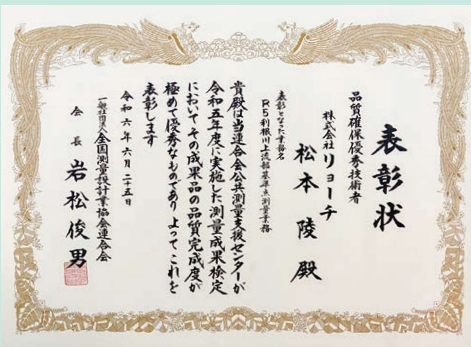 表彰状
品質確保優秀技術者
株式会社リョーチ
松本 陵 殿
表彰となった業務名
R5利根川上流部基準点測量業務
貴殿は当連合会公共測量支援センターが
令和五年度に実施した測量成果検定
においてその成果品の品質完成度が
極めて優秀なものであり よってこれを
表彰します
令和六年六月二十五日
一般社団法人全国測量設計業協会連合会
会長 岩松俊男